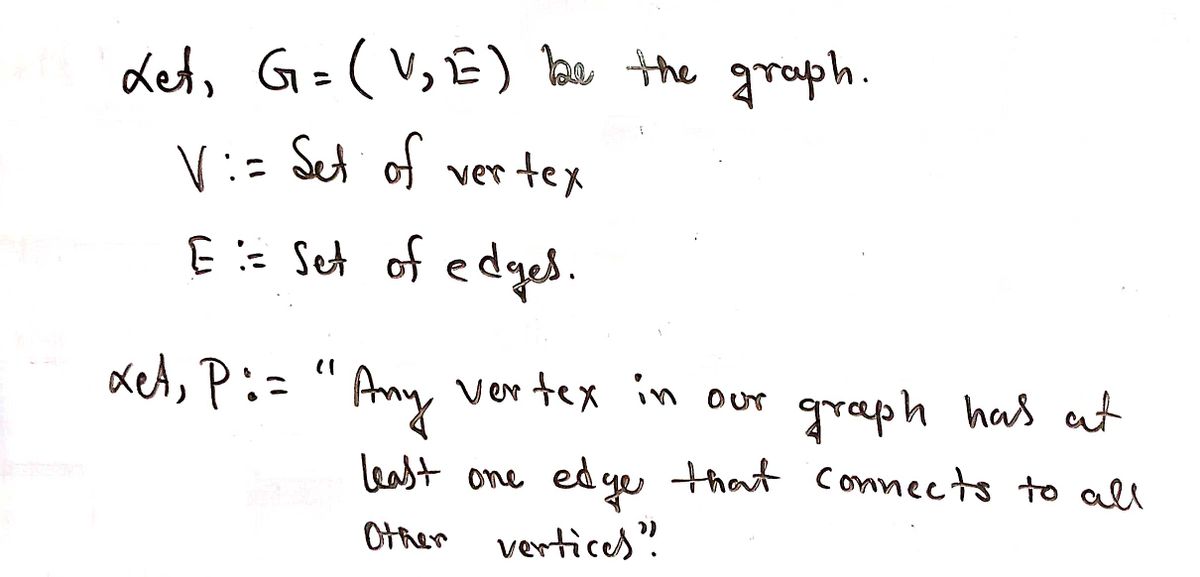 Let, G = (V, E) be the graph.
V := Set of vertex
E := Set of edges.
Let, P := "Any vertex in our graph has at
least one edge that connects to all
Other vertices".